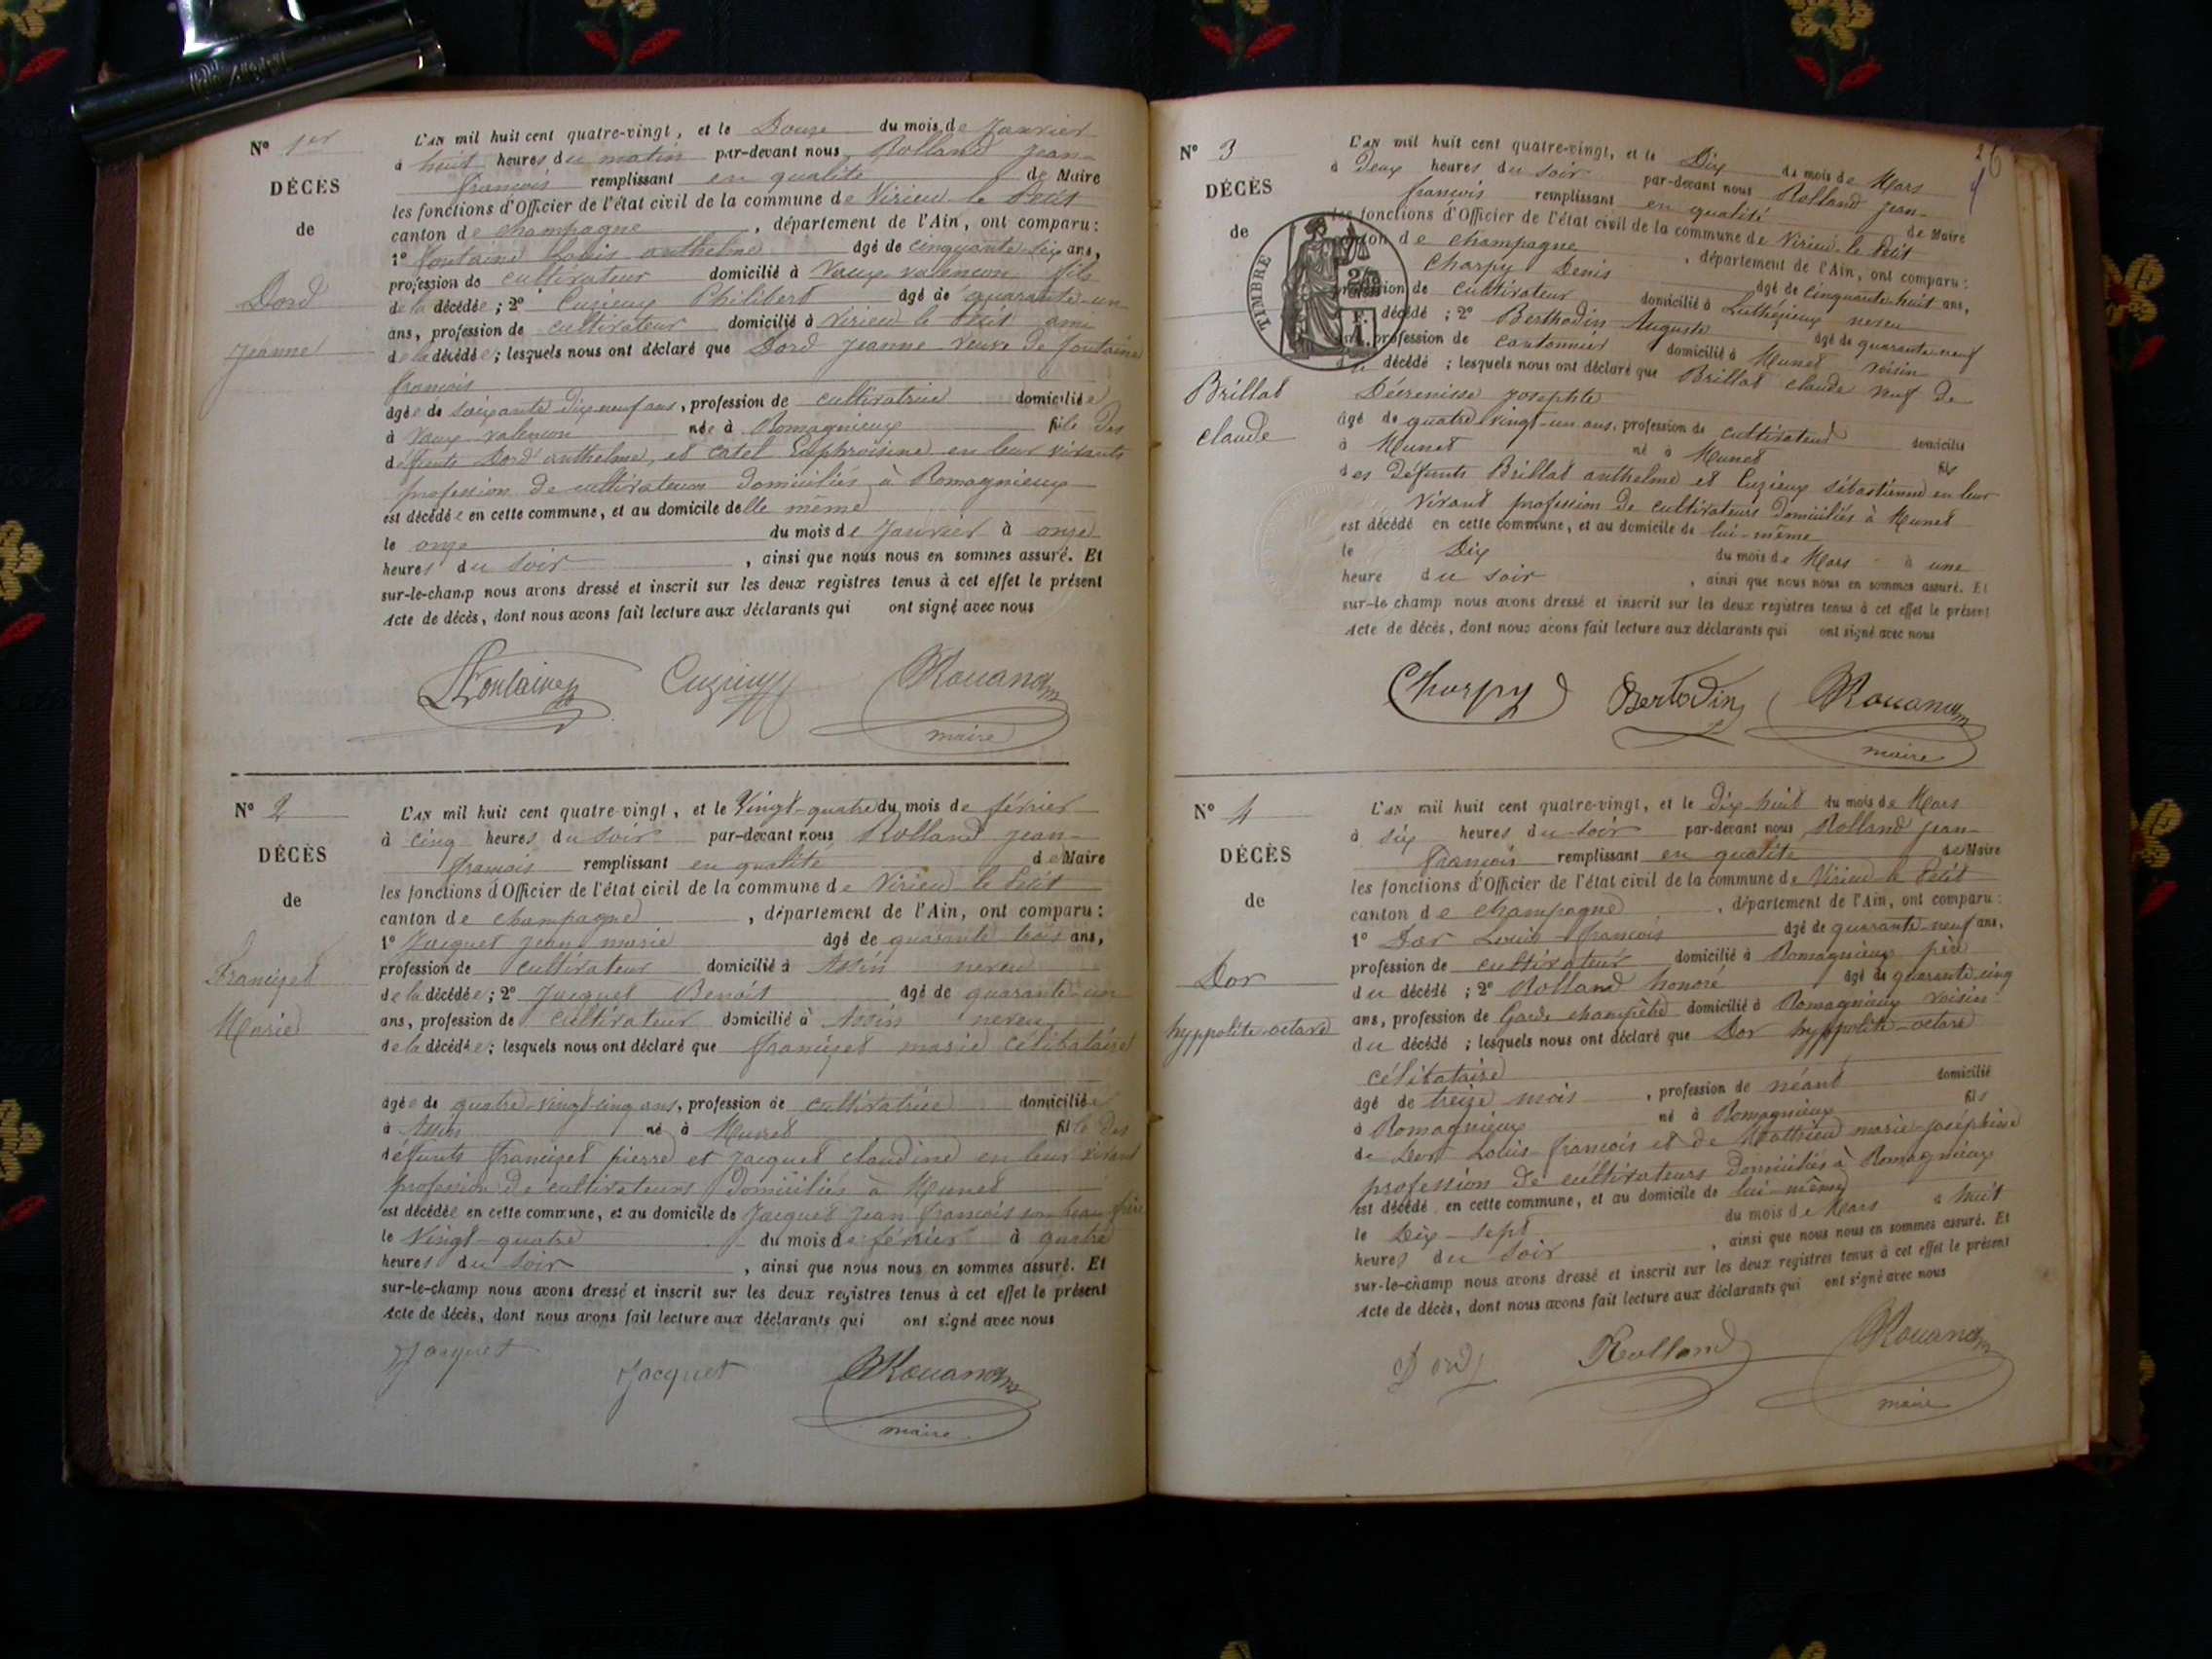 N° 1er
DÉCÈS
de
Dord
Jeanne
L'AN mil huit cent quatre-vingt, et le Douze du mois de Janvier
à huit heures du matin par-devant nous Rolland Jean-
françois remplissant en qualité de Maire
les fonctions d'Officier de l'état civil de la commune de Virieu le Petit
canton de champagne, département de l'Ain, ont comparu :
1° fontaine Louis anthelme âgé de cinquante-six ans,
profession de cultivateur domicilié à Vaux valencon fils
de la décédée ; 2° Cuzieux Philibert âgé de quarante-un
ans, profession de cultivateur domicilié à Virieu le Petit ami
de la décédée ; lesquels nous ont déclaré que Dord Jeanne Veuve de fontaine
françois
âgée de soixante dix neuf ans, profession de cultivatrice domiciliée
à Vaux valencon née à Romagnieux fille Des
défunts Dord anthelme, et Catel Euphroisine en leur vivants
profession de cultivateurs domiciliés à Romagnieux
est décédée en cette commune, et au domicile delle même
le onze du mois de Janvier à onze
heures du soir, ainsi que nous nous en sommes assuré. Et
sur-le-champ nous avons dressé et inscrit sur les deux registres tenus à cet effet le présent
Acte de décès, dont nous avons fait lecture aux déclarants qui ont signé avec nous
maire
N° 2
DÉCÈS
de
Francizet
Marie
L'AN mil huit cent quatre-vingt, et le Vingt-quatre du mois de février
à cinq heures du soir par-devant nous Rolland Jean-
françois remplissant en qualité de Maire
les fonctions d'Officier de l'état civil de la commune de Virieu le Petit
canton de champagne, département de l'Ain, ont comparu :
1° Jacquet Jean marie âgé de quarante trois ans,
profession de cultivateur domicilié à Assin neveu
de la décédée ; 2° Jacquet Benoit âgé de quarante-un
ans, profession de cultivateur domicilié à Assin neveu
de la décédée ; lesquels nous ont déclaré que francizet marie célibataire
âgée de quatre-vingt-cinq ans, profession de cultivatrice domiciliée
à Assin né à Munet fille des
défunts francizet pierre et Jacquet claudine en leur vivant
profession de cultivateurs domiciliés à Munet
est décédée en cette commune, et au domicile de Jacquet Jean françois son beau frère
le Vingt-quatre du mois de février à quatre
heures du soir, ainsi que nous nous en sommes assuré. Et
sur-le-champ nous avons dressé et inscrit sur les deux registres tenus à cet effet le présent
Acte de décès, dont nous avons fait lecture aux déclarants qui ont signé avec nous
Jacquet Jacquet
maire
26
N° 3
DÉCÈS
de
TIMBRE
Brillat
claude
L'AN mil huit cent quatre-vingt, et le Dix du mois de Mars
à Deux heures du soir par-devant nous Rolland Jean-
françois remplissant en qualité de Maire
les fonctions d'Officier de l'état civil de la commune de Virieu le Petit
canton de champagne, département de l'Ain, ont comparu :
Charpy Denis âgé de cinquante-huit ans,
profession de cultivateur domicilié à Luthézieux neveu
décédé ; 2° Berthodin Auguste âgé de quarante-neuf
profession de cantonnier domicilié à Munet voisin
du décédé ; lesquels nous ont déclaré que Brillat claude veuf de
Décrenisse Josephte
âgé de quatre-vingt-un ans, profession de cultivateur domicilié
à Munet né à Munet fils
des défunts Brillat anthelme et Cuzieux sébastienne en leur
vivant profession de cultivateurs domiciliés à Munet
est décédé en cette commune, et au domicile de lui-même
le Dix du mois de Mars à une
heure du soir, ainsi que nous nous en sommes assuré. Et
sur-le-champ nous avons dressé et inscrit sur les deux registres tenus à cet effet le présent
Acte de décès, dont nous avons fait lecture aux déclarants qui ont signé avec nous
Charpy Bertodin
maire
N° 4
DÉCÈS
de
Dor
hyppolite-octave
L'AN mil huit cent quatre-vingt, et le dix-huit du mois de Mars
à six heures du soir par-devant nous Rolland Jean-
françois remplissant en qualité de Maire
les fonctions d'Officier de l'état civil de la commune de Virieu le Petit
canton de champagne, département de l'Ain, ont comparu :
1° Dor Louis françois âgé de quarante-neuf ans,
profession de cultivateur domicilié à Romagnieux père
du décédé ; 2° Rolland honoré âgé de quarante-cinq
ans, profession de Garde champêtre domicilié à Romagnieux voisin
du décédé ; lesquels nous ont déclaré que Dor hyppolite-octave
célibataire
âgé de treize mois, profession de néant domicilié
à Romagnieux né à Romagnieux fils
de Dor Louis-françois et de Matthieu marie-joséphine
profession de cultivateurs domiciliés à Romagnieux
est décédé en cette commune, et au domicile de lui-même
le Dix-sept du mois de Mars à huit
heures du soir, ainsi que nous nous en sommes assuré. Et
sur-le-champ nous avons dressé et inscrit sur les deux registres tenus à cet effet le présent
Acte de décès, dont nous avons fait lecture aux déclarants qui ont signé avec nous
Rolland
maire